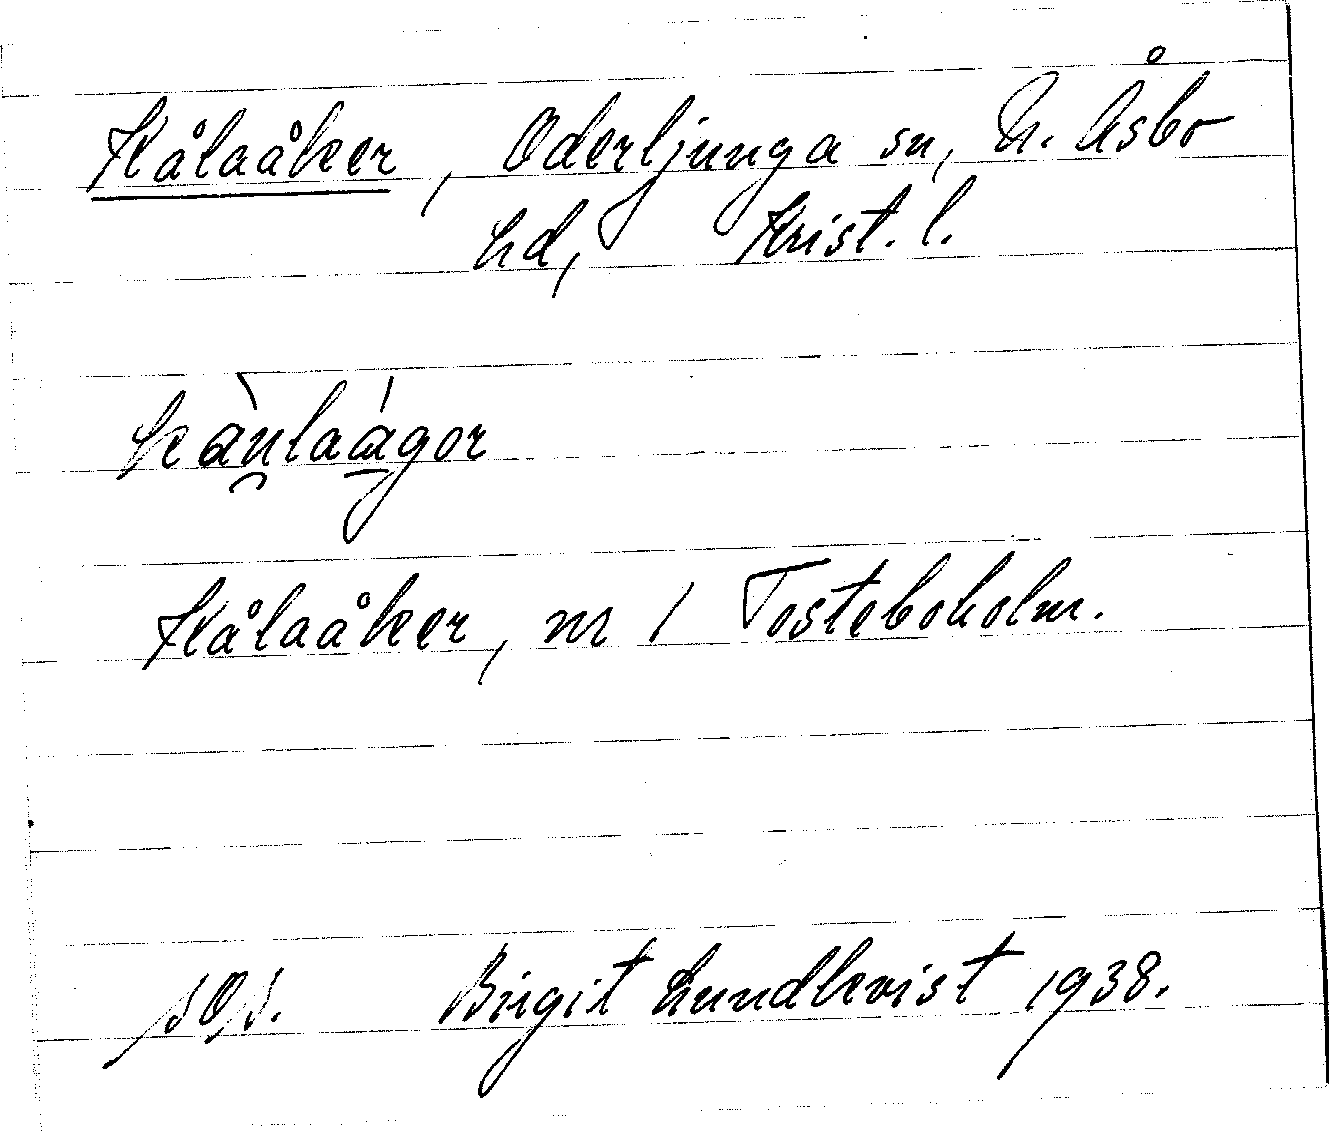 Kålaåker, Oderljunga sn, N. Åsbo
hd, Krist. l.
kànlaágor
Kålaåker, nr 1 Tosteboholm.
Birgit Lundkvist 1938.